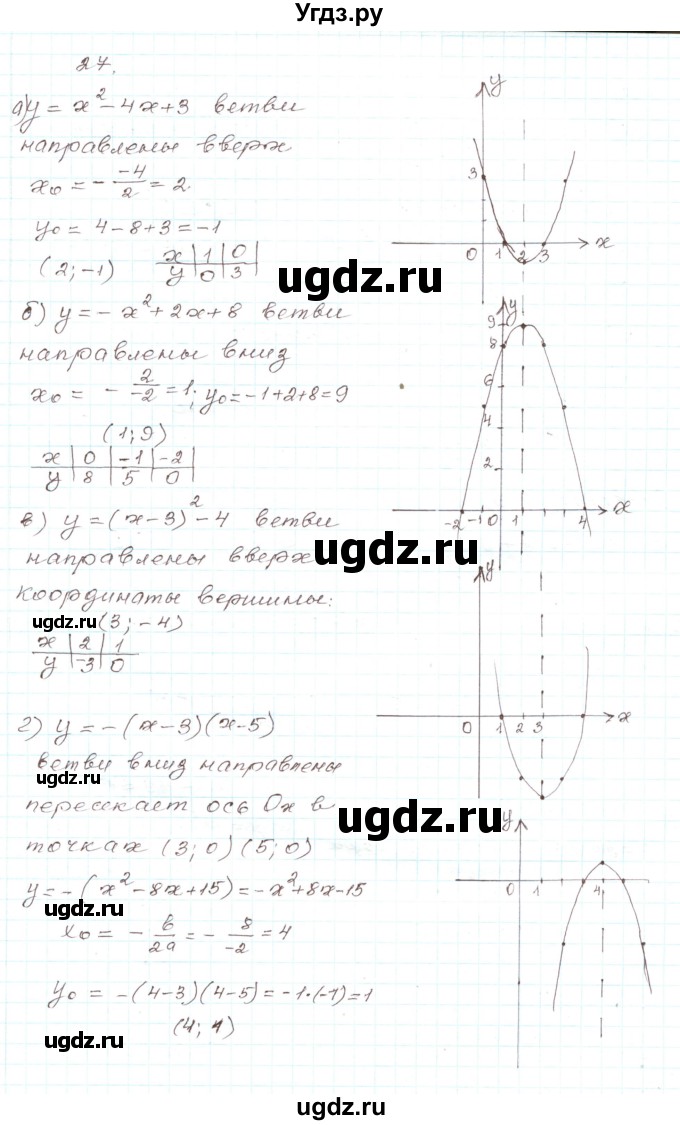 Угдз.ру
27.
а) y = x² - 4x + 3 ветви
направлены вверх
x₀ = - -4/2 = 2.
y₀ = 4 - 8 + 3 = -1
(2; -1)
x | 1 | 0
y | 0 | 3
y
3
0 1 2 3 x
ugdz.ru
б) y = - x² + 2x + 8 ветви
направлены вниз
x₀ = - 2/-2 = 1; y₀ = -1 + 2 + 8 = 9
(1; 9)
x | 0 | -1 | -2
y | 8 | 5 | 0
y
9
8
6
4
2
-2 -1 0 1 4 x
в) y = (x - 3)² - 4 ветви
направлены вверх
ugdz.ru
координаты вершины:
ugdz.ru (3; -4)
x | 2 | 1
y | -3 | 0
y
0 1 2 3 x
г) y = - (x - 3)(x - 5)
ветви вниз направлены
ugdz.ru
пересекает ось Ox в
ugdz.ru
точках (3; 0) (5; 0)
y = - (x² - 8x + 15) = - x² + 8x - 15
ugdz.ru
x₀ = - b/2a = - 8/-2 = 4
y₀ = - (4 - 3)(4 - 5) = -1 · (-1) = 1
(4; 1)
y
0 1 4
ugdz.ru
ugdz.ru